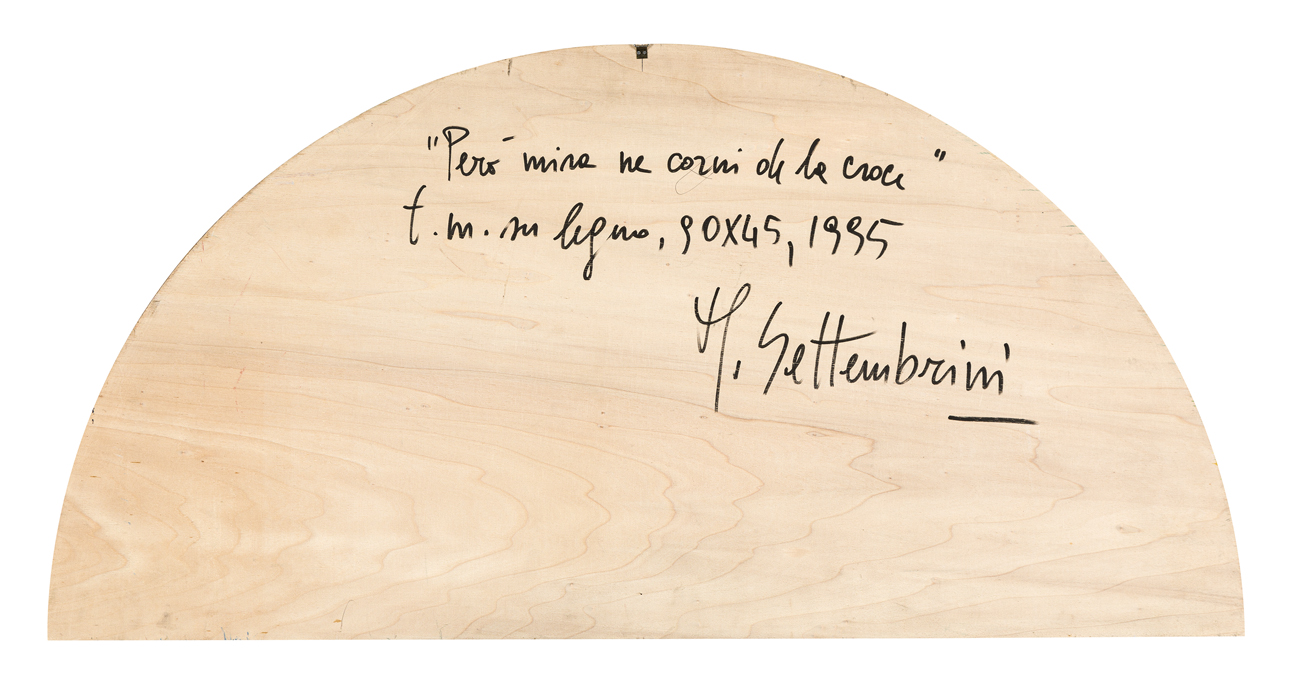 "Però mira ne corni de la croce"
t.m. su legno, 90X45, 1995
M. Settembrini